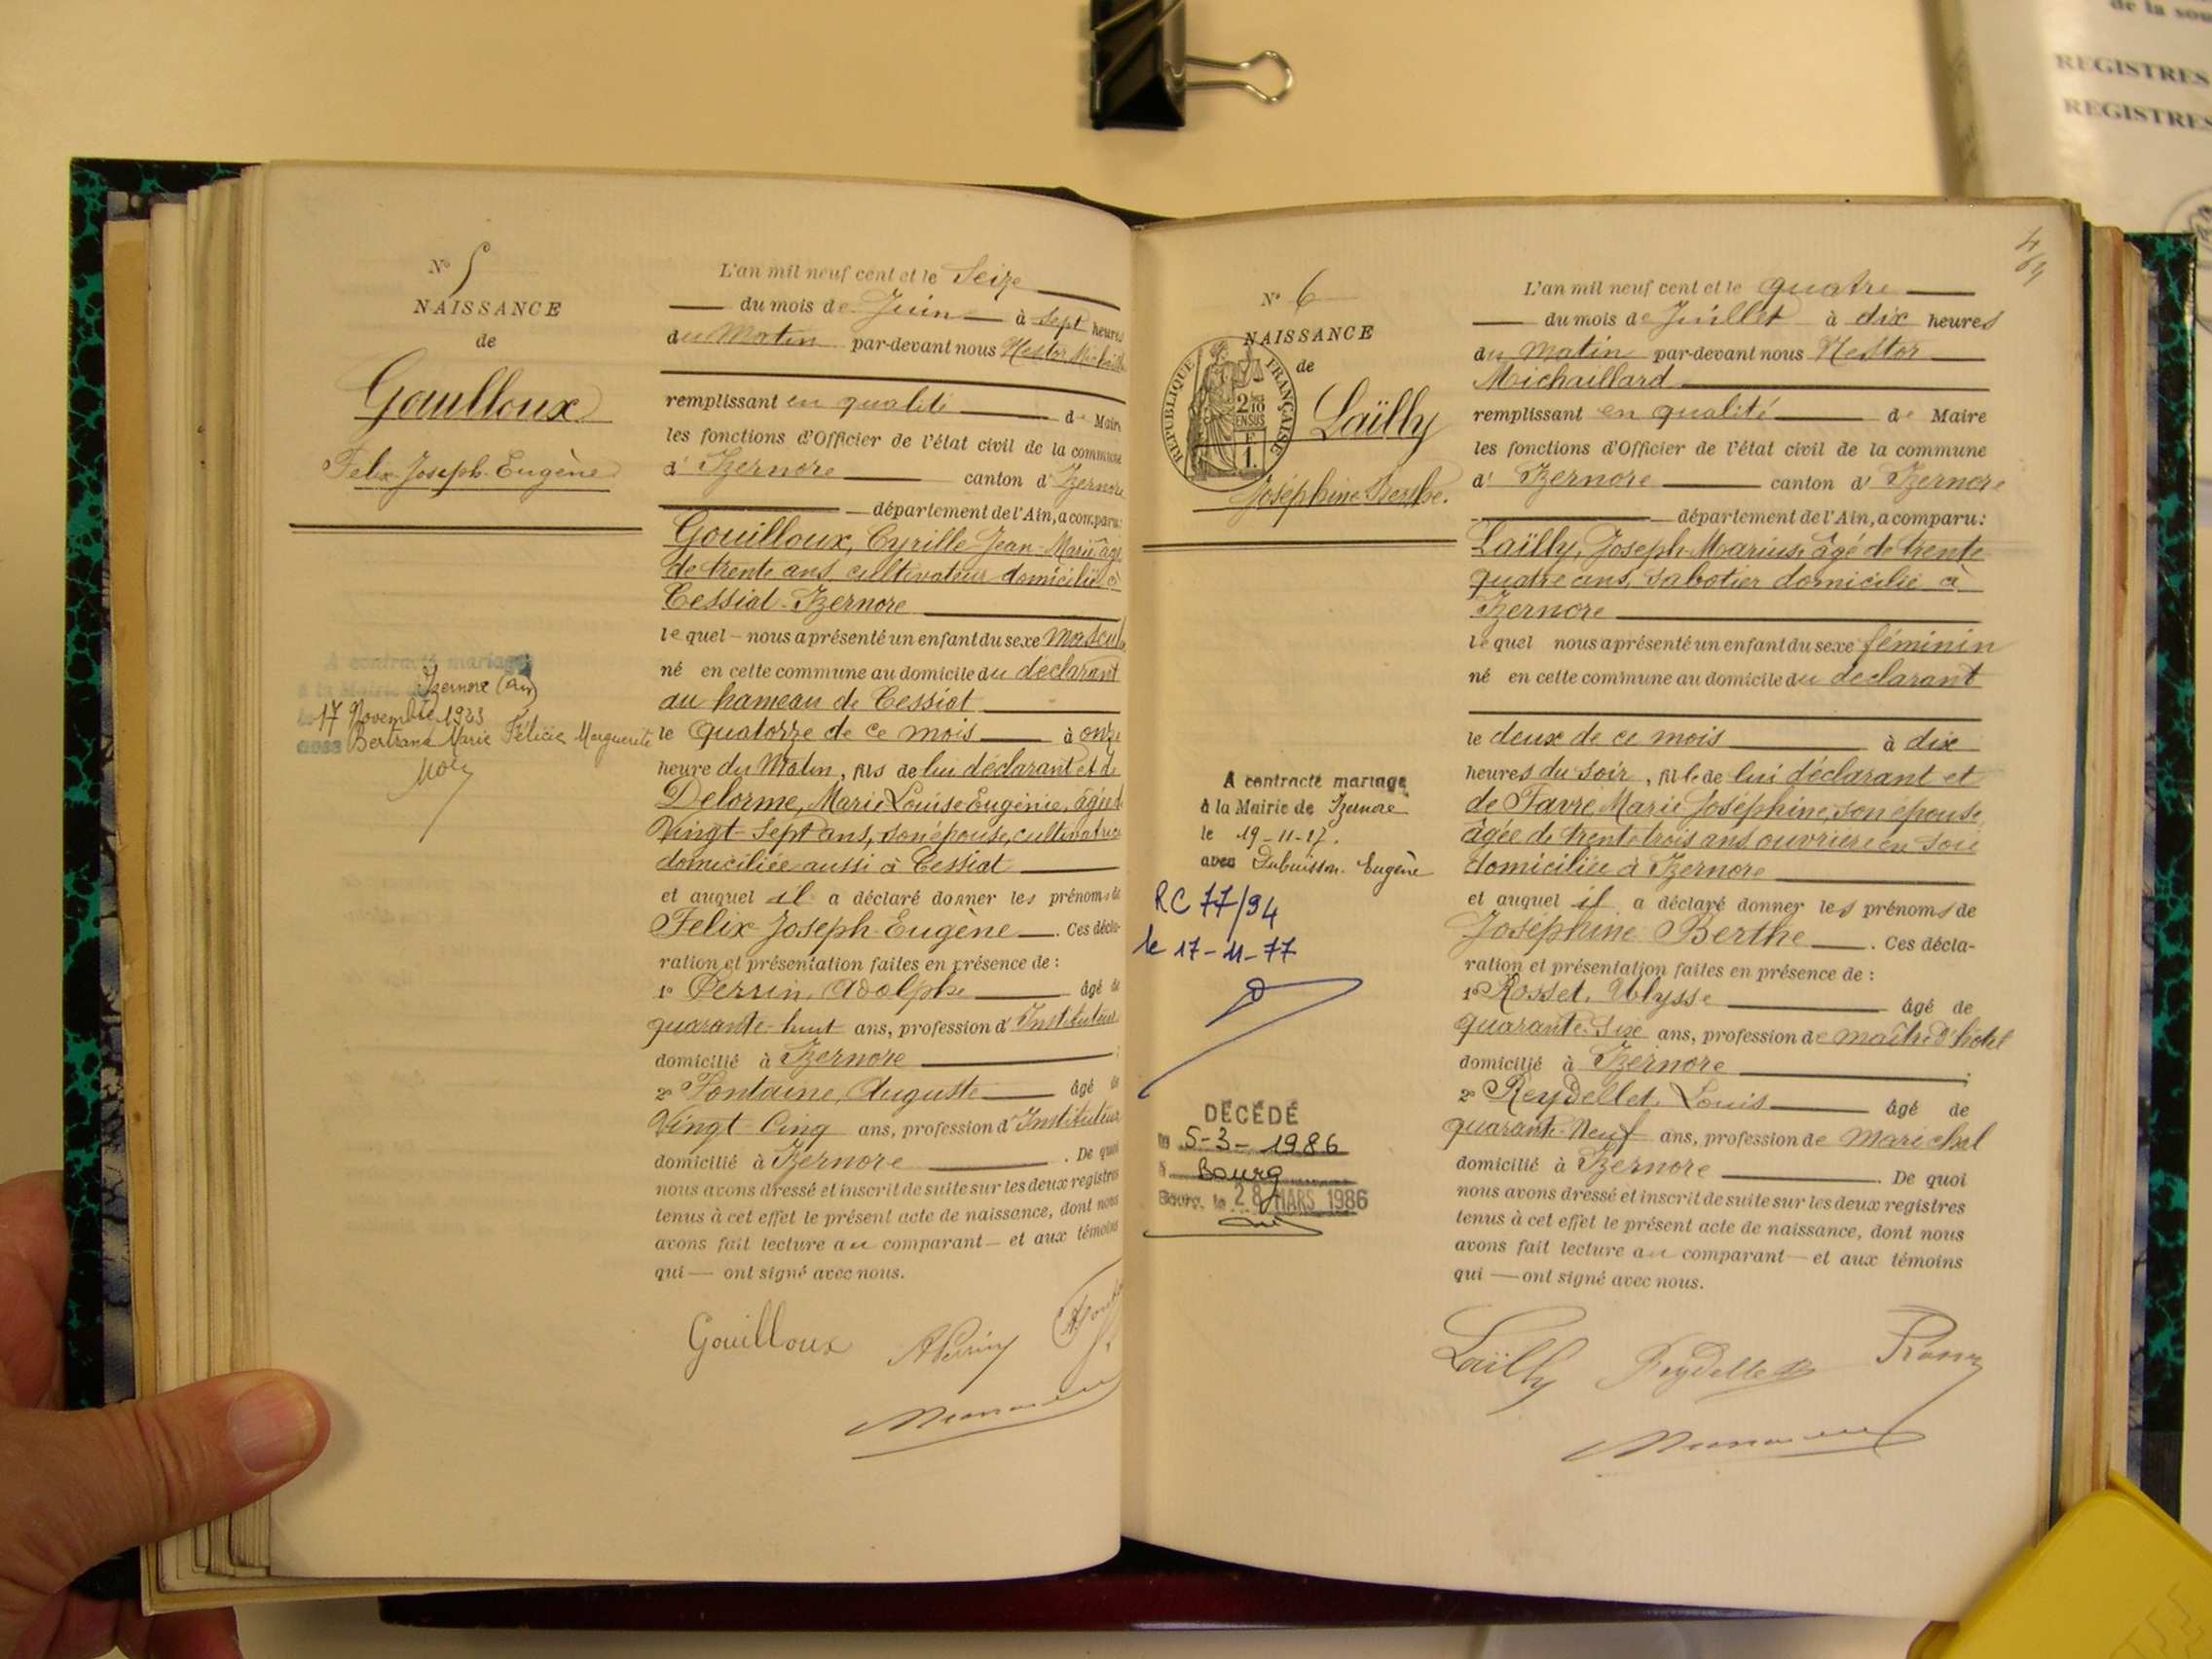 de la sou
REGISTRES
REGISTRES
N° 5
NAISSANCE
de
Gouilloux
Felix Joseph Eugène
A contracté mariage
à la Mairie de Izernore (Ain)
le 17 Novembre 1923
avec Bertrand Marie Félicie Marguerite
L'an mil neuf cent et le Seize
du mois de Juin à Sept heures
du Matin par-devant nous Nestor
remplissant en qualité de Maire
les fonctions d'Officier de l'état civil de la commune
d' Izernore canton d' Izernore
département de l'Ain, a comparu:
Gouilloux, Cyrille Jean-Marie âgé
de trente ans, cultivateur domicilié à
Cessiat-Izernore
lequel - nous a présenté un enfant du sexe Mascul
né en cette commune au domicile du déclarant
au hameau de Cessiat
le Quatorze de ce mois à onze
heure du Matin, fils de lui déclarant et de
Delorme, Marie Louise Eugénie, âgée d
Vingt-Sept ans, son épouse, cultivatrice
domiciliée aussi à Cessiat
et auquel il a déclaré donner les prénoms de
Felix Joseph-Eugène. Ces décla-
ration et présentation faites en présence de :
1° Perrin, Adolphe âgé de
quarante-huit ans, profession d' Instituteur
domicilié à Izernore ;
2° Fontaine, Auguste âgé de
Vingt-Cinq ans, profession d' Instituteur
domicilié à Izernore. De quoi
nous avons dressé et inscrit de suite sur les deux registres
tenus à cet effet le présent acte de naissance, dont nous
avons fait lecture au comparant - et aux témoins
qui — ont signé avec nous.
Gouilloux APerrin
N° 6
NAISSANCE
de
REPUBLIQUE FRANÇAISE
2/10
EN SUS
1 F.
Laïlly
Joséphine Berthe.
A contracté mariage
à la Mairie de Izernore
le 19-11-27.
avec Dubuisson Eugène
RC 77/94
le 17-11-77
DÉCÉDÉ
le 5-3-1986
à Bourg
Bourg, le 28 MARS 1986
L'an mil neuf cent et le quatre
du mois de Juillet à dix heures
du matin par-devant nous Nestor
Michaillard
remplissant en qualité de Maire
les fonctions d'Officier de l'état civil de la commune
d' Izernore canton d' Izernore
département de l'Ain, a comparu:
Laïlly, Joseph-Marius, âgé de trente
quatre ans, sabotier domicilié à
Izernore
lequel nous a présenté un enfant du sexe féminin
né en cette commune au domicile du déclarant
le deux de ce mois à dix
heures du soir, fille de lui déclarant et
de Favre, Marie Joséphine, son épouse,
âgée de trente trois ans ouvrière en soie
domiciliée à Izernore
et auquel il a déclaré donner les prénoms de
Joséphine Berthe. Ces décla-
ration et présentation faites en présence de :
1° Rosset, Ulysse âgé de
quarante-six ans, profession de maître d'hôtel
domicilié à Izernore ;
2° Reydellet, Louis âgé de
quarante-Neuf ans, profession de maréchal
domicilié à Izernore. De quoi
nous avons dressé et inscrit de suite sur les deux registres
tenus à cet effet le présent acte de naissance, dont nous
avons fait lecture au comparant — et aux témoins
qui — ont signé avec nous.
Laïlly Reydellet